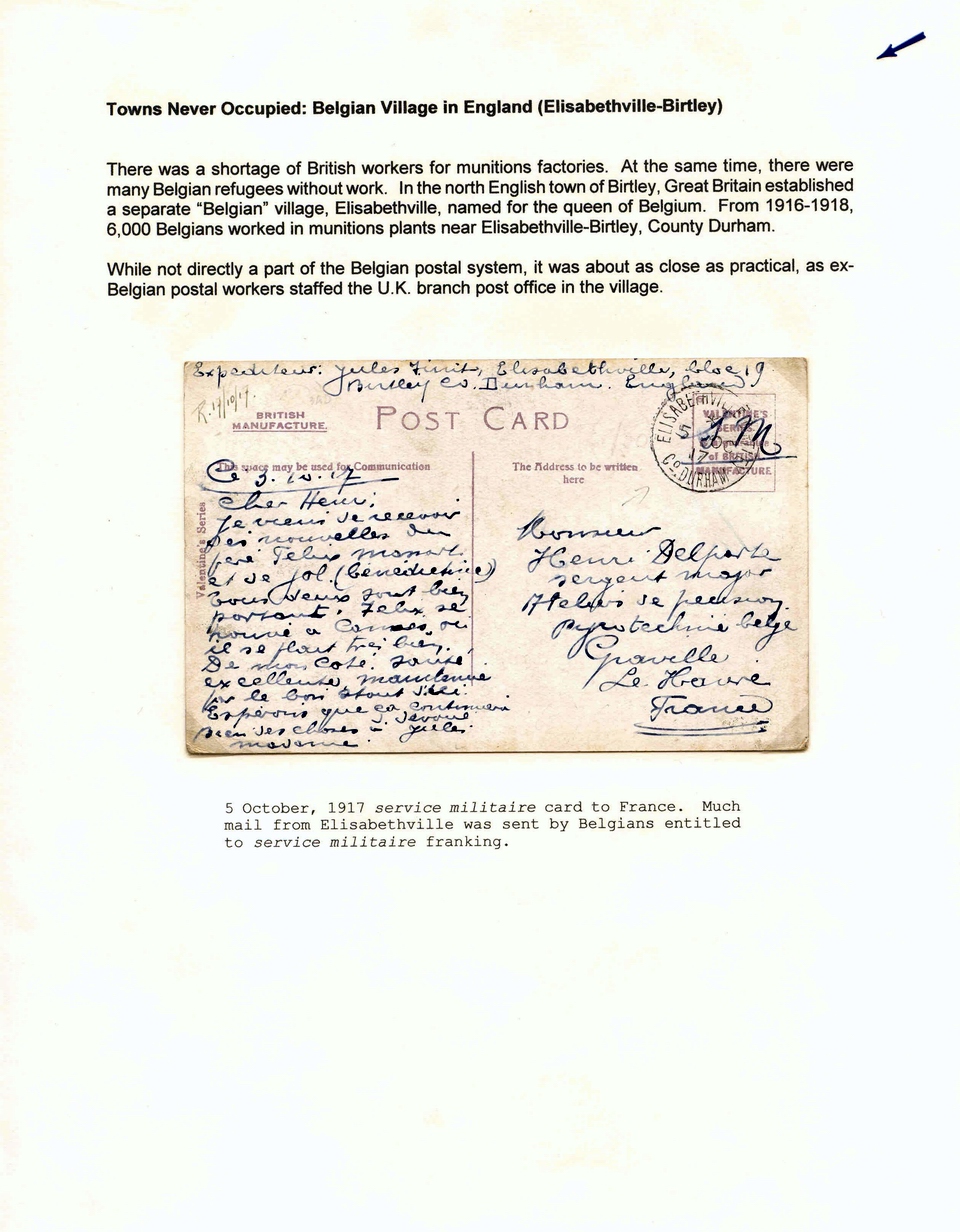 Towns Never Occupied: Belgian Village in England (Elisabethville-Birtley)
There was a shortage of British workers for munitions factories. At the same time, there were
many Belgian refugees without work. In the north English town of Birtley, Great Britain established
a separate “Belgian” village, Elisabethville, named for the queen of Belgium. From 1916-1918,
6,000 Belgians worked in munitions plants near Elisabethville-Birtley, County Durham.
While not directly a part of the Belgian postal system, it was about as close as practical, as ex-
Belgian postal workers staffed the U.K. branch post office in the village.
Expediteur: Jules Elisabethville, bloc 19
Birtley Co. Durham. England
R. 14/10/17.
BRITISH
MANUFACTURE.
POST CARD
ELISABETHVILLE
5
17
Co. DURHAM
VALENTINE'S
SERIES
of BRITISH
MANUFACTURE
S M
This space may be used for Communication
The Address to be written
here
Valentine's Series
Ce 3.10.17
Cher Henri,
Je viens de recevoir
des nouvelles du
père Félix
et de Jol. (bénédictine)
tous deux sont bien
portant. Félix se
trouve à Cannes, où
il se plait très bien.
De mon côté, santé
excellente, maintenue
par le bon stout d'ici.
Espérons que ça continuera
J. dévoué
Bien des choses à Jules
madame.
Monsieur
Henri Delporte
sergent major
Ateliers de
Pyrotechnie belge
Graville
Le Havre
France
5 October, 1917 service militaire card to France. Much
mail from Elisabethville was sent by Belgians entitled
to service militaire franking.